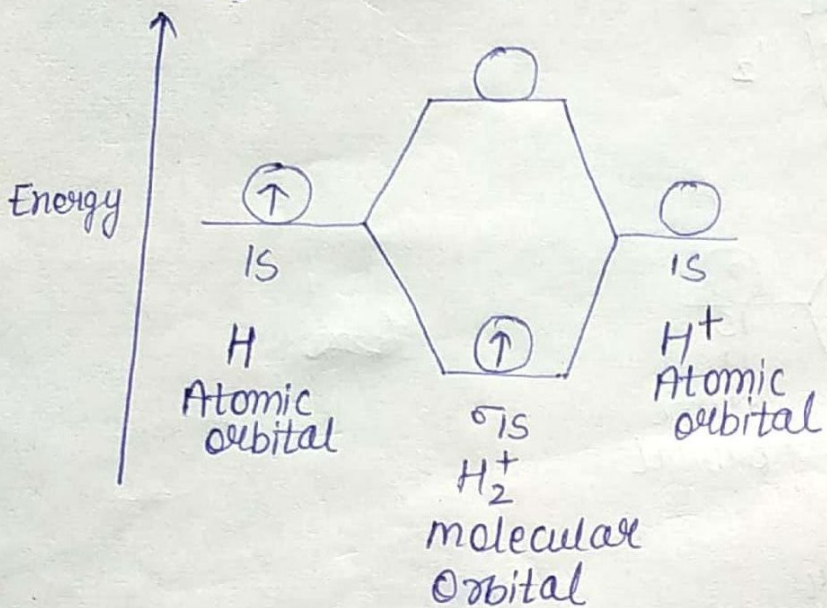 Energy
↑
1S
H
Atomic
orbital
↑
σ1S
H₂⁺
molecular
Orbital
1S
H⁺
Atomic
orbital